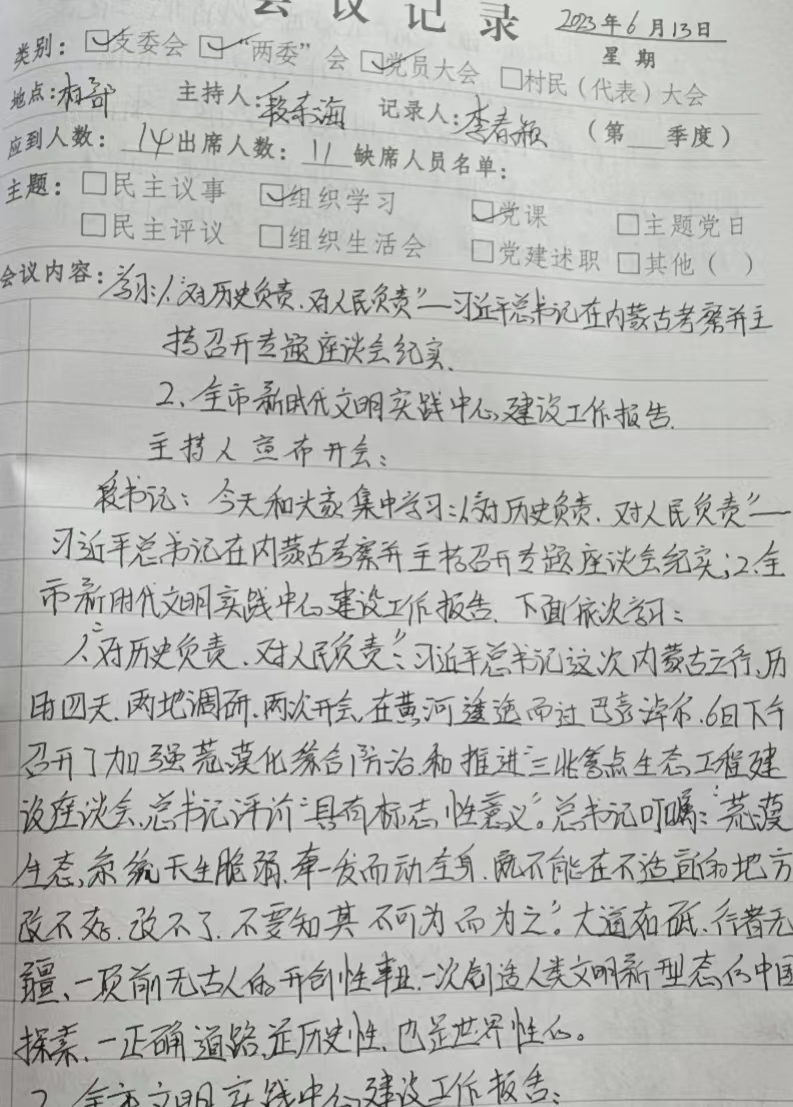 会议记录 2023年6月13日
类别：☑支委会 ☑“两委”会 ☑党员大会 □村民（代表）大会 星期
地点：村部 主持人：段东海 记录人：李春颖 （第 季度）
应到人数：14 出席人数：11 缺席人员名单：
主题：□民主议事 ☑组织学习 ☑党课 □主题党日
□民主评议 □组织生活会 □党建述职 □其他（ ）
会议内容：学习：1、“对历史负责、对人民负责”—习近平总书记在内蒙古考察并主
持召开专题座谈会纪实、
2、全市新时代文明实践中心建设工作报告、
主持人宣布开会：
段书记：今天和大家集中学习：1、“对历史负责、对人民负责”—
习近平总书记在内蒙古考察并主持召开专题座谈会纪实；2、全
市新时代文明实践中心建设工作报告、下面依次学习：
1、“对历史负责、对人民负责”：习近平总书记这次内蒙古之行，历
时四天、两地调研、两次开会，在黄河逶迤而过巴彦淖尔、6日下午
召开了加强荒漠化综合防治和推进“三北”重点生态工程建
设座谈会，总书记评价“具有标志性意义”。总书记叮嘱：“荒漠
生态系统天生脆弱，牵一发而动全身、既不能在不适宜的地方
改不好、改不了、不要知其不可为而为之”。大道如砥、行者无
疆、一项前无古人的开创性事业、一次创造人类文明新型态的中国
探索、一正确道路，是历史性、也是世界性的。
2、全市文明实践中心建设工作报告：